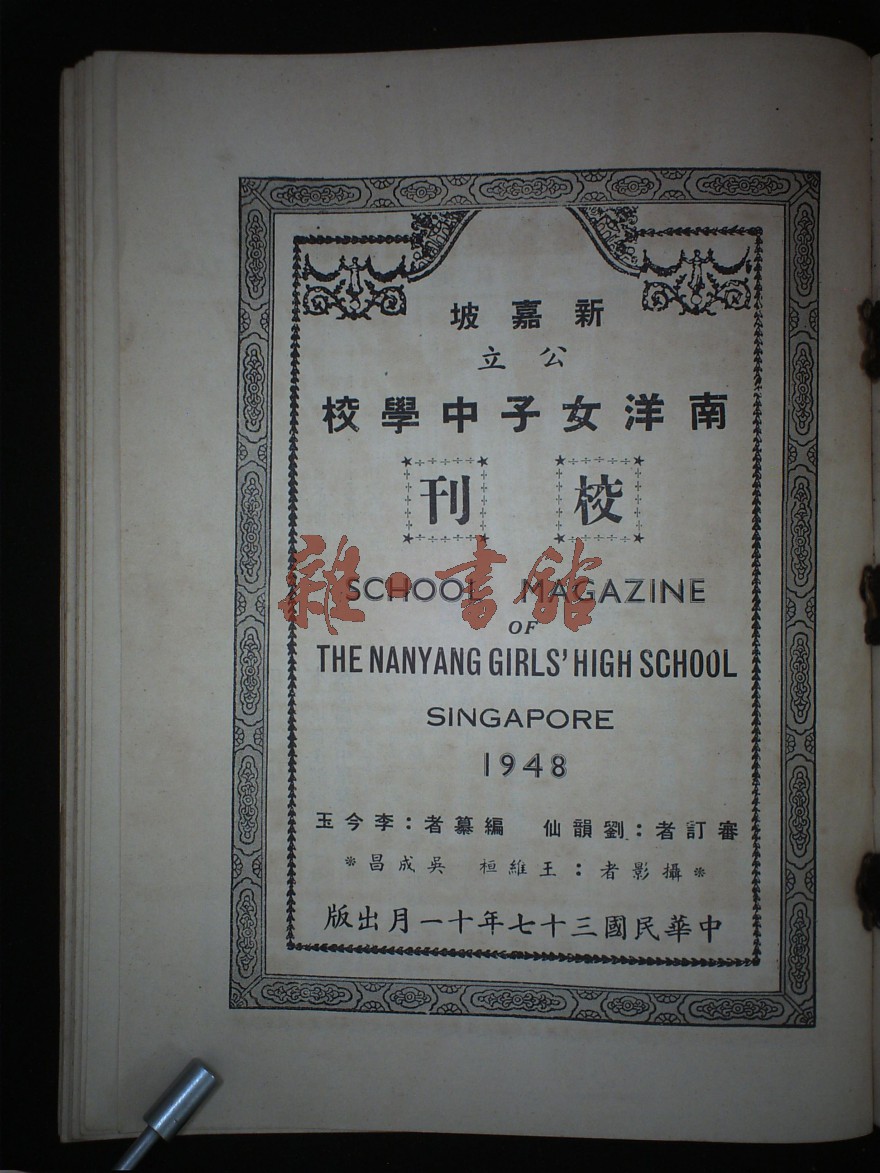 新嘉坡
公立
南洋女子中學校
校刊
雜·書館
SCHOOL MAGAZINE
OF
THE NANYANG GIRLS' HIGH SCHOOL
SINGAPORE
1948
審訂者：劉韻仙 編纂者：李今玉
＊攝影者：王維桓 吳成昌＊
中華民國三十七年十一月出版